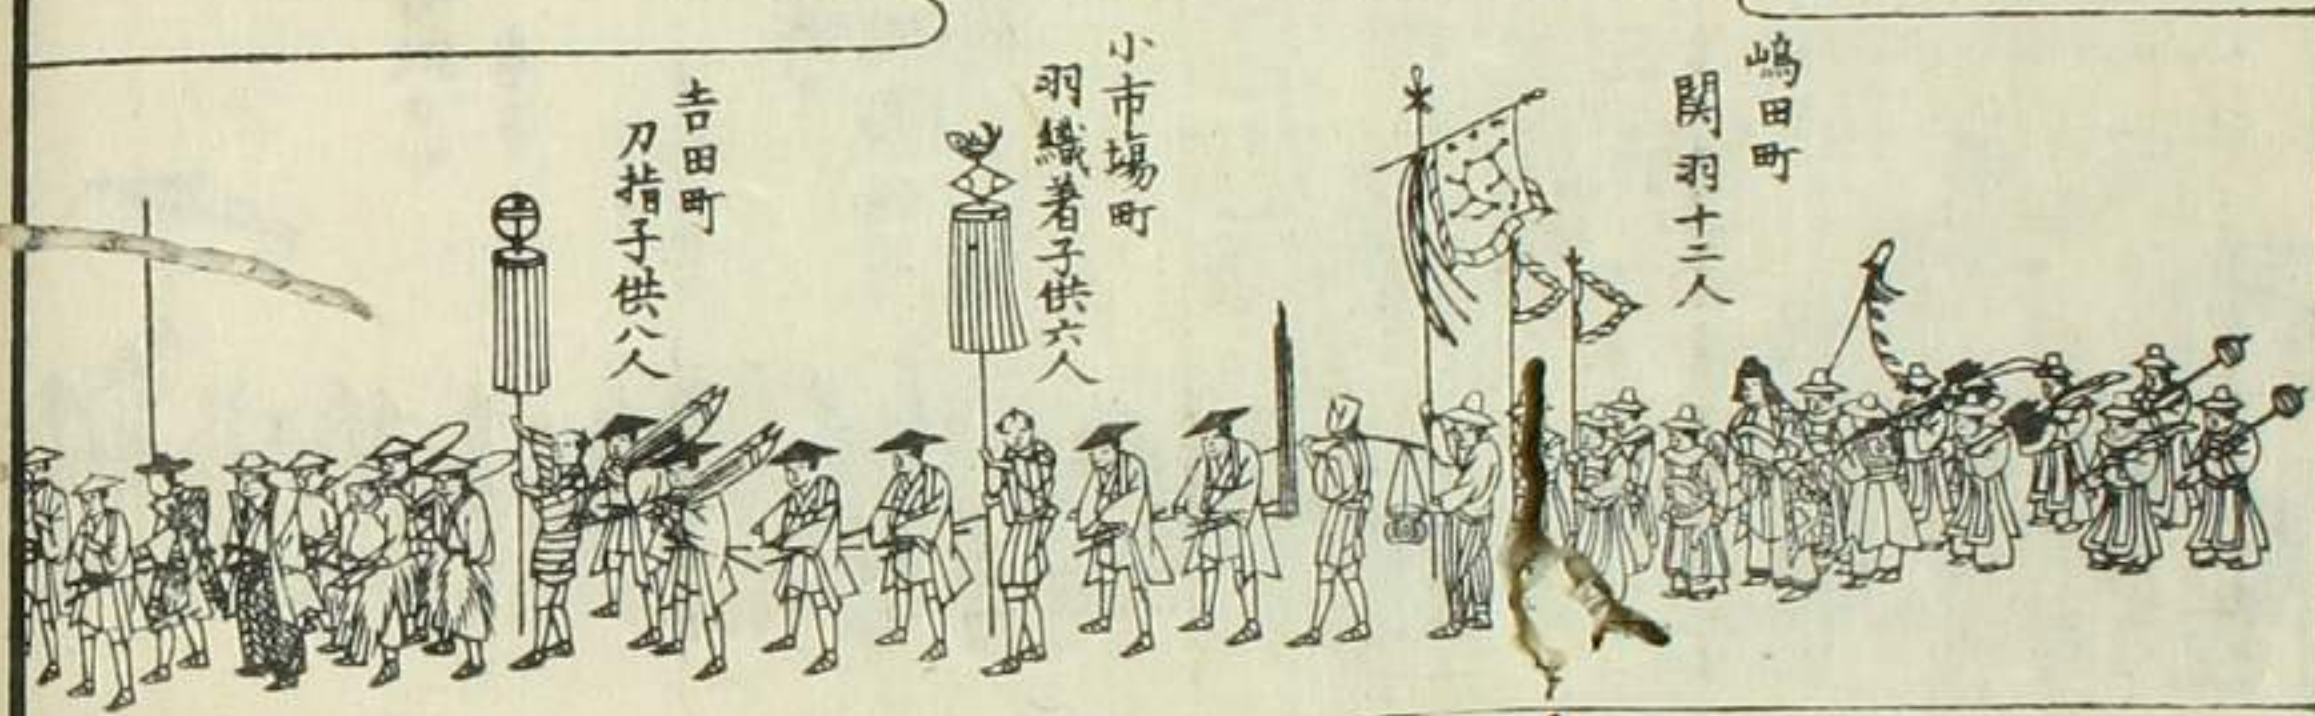 嶋田町
関羽十二人
小市場町
羽織着子供六人
吉田町
刀指子供八人